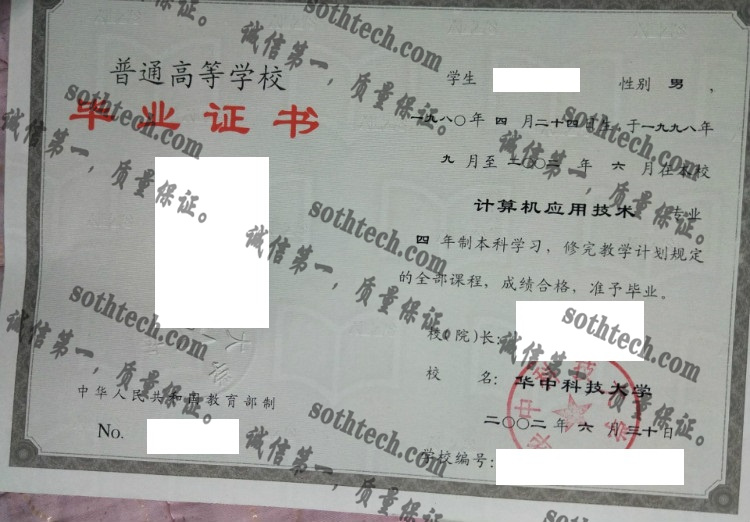 普通高等学校
毕业证书
中华人民共和国教育部制
No.
学生 性别 男 ，
一九八〇年 四 月二十四日生，于一九九八年
九 月至 二〇〇二 年 六 月在本校
计算机应用技术 专业
四 年制本科学习，修完教学计划规定
的全部课程，成绩合格，准予毕业。
校（院）长：
校 名：华中科技大学
二〇〇二 年 六 月三十日
学校编号：
sothtech.com
诚信第一，质量保证。
sothtech.com
诚信第一，质量保证。
sothtech.com
诚信第一，质量保证。
sothtech.com
诚信第一，质量保证。
sothtech.com
诚信第一，质量保证。
sothtech.com
诚信第一，质量保证。
sothtech.com
sothtech.com
诚信第一，质量保证。
sothtech.com
诚信第一，质量保证。